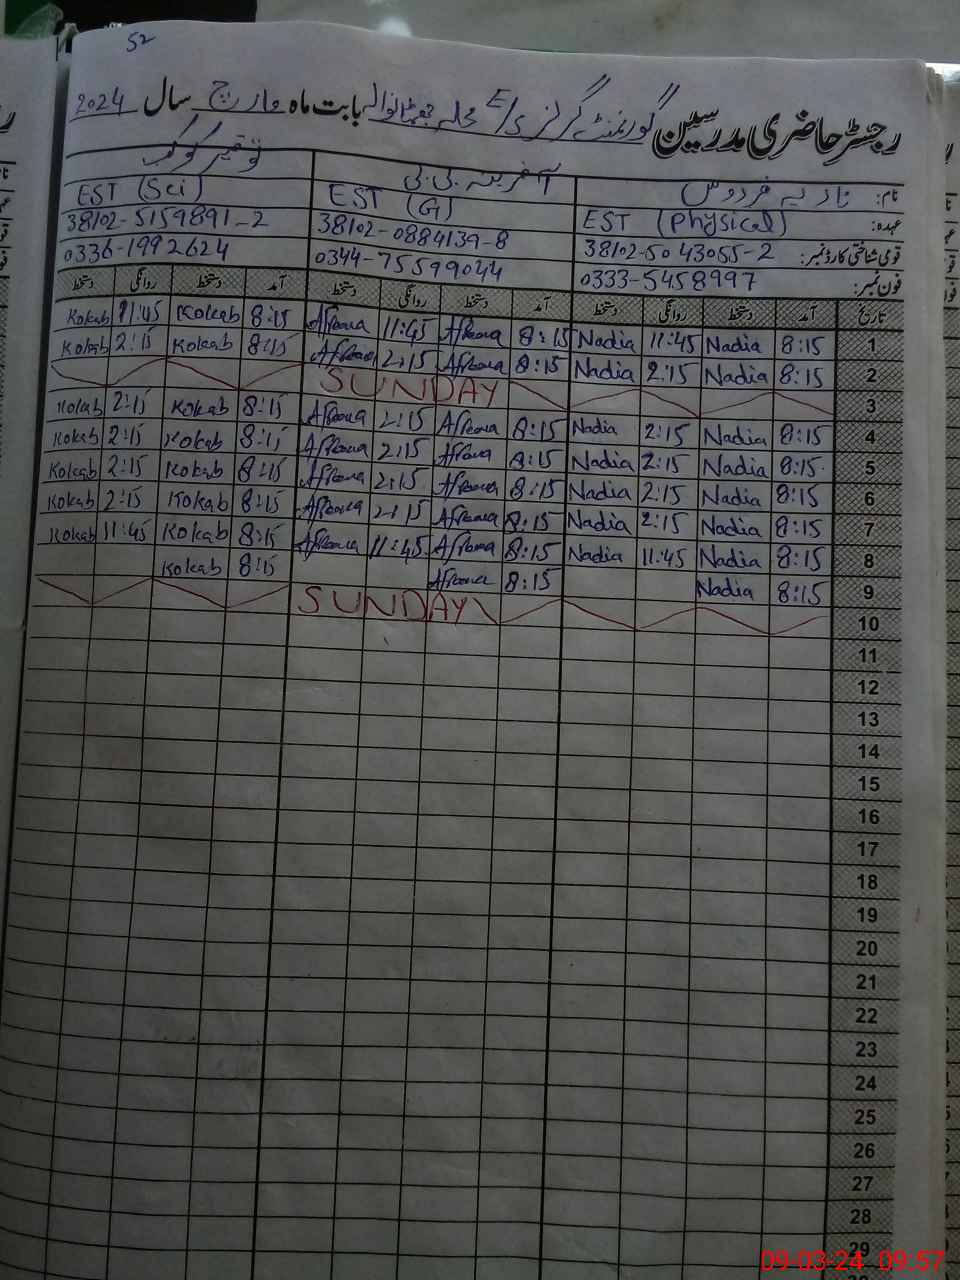 52
رجسٹر حاضری مدرسین گورنمنٹ گرلز E/S محلہ جھمٹانوالہ بابت ماہ مارچ سال 2024
نام: نادیہ فردوس آفرینہ بی بی توقیر کوکب
عہدہ: EST (Physical) EST (G) EST (Sci)
قومی شناختی کارڈ نمبر: 38102-5043055-2 38102-0884139-8 38102-5159891-2
فون نمبر: 0333-5458997 0344-75599044 0336-1992624
تاریخ آمد دستخط روانگی دستخط آمد دستخط روانگی دستخط آمد دستخط روانگی دستخط
1 8:15 Nadia 11:45 Nadia 8:15 Afreena 11:45 Afreena 8:15 Kokab 11:45 Kokab
2 8:15 Nadia 2:15 Nadia 8:15 Afreena 2:15 Afreena 8:15 Kokab 2:15 Kokab
3 SUNDAY
4 8:15 Nadia 2:15 Nadia 8:15 Afreena 2:15 Afreena 8:15 Kokab 2:15 Kokab
5 8:15 Nadia 2:15 Nadia 8:15 Afreena 2:15 Afreena 8:15 Kokab 2:15 Kokab
6 8:15 Nadia 2:15 Nadia 8:15 Afreena 2:15 Afreena 8:15 Kokab 2:15 Kokab
7 8:15 Nadia 2:15 Nadia 8:15 Afreena 2:15 Afreena 8:15 Kokab 2:15 Kokab
8 8:15 Nadia 11:45 Nadia 8:15 Afreena 11:45 Afreena 8:15 Kokab 11:45 Kokab
9 8:15 Nadia 8:15 Afreena 8:15 Kokab
10 SUNDAY
11
12
13
14
15
16
17
18
19
20
21
22
23
24
25
26
27
28
29
09-03-24 09:57